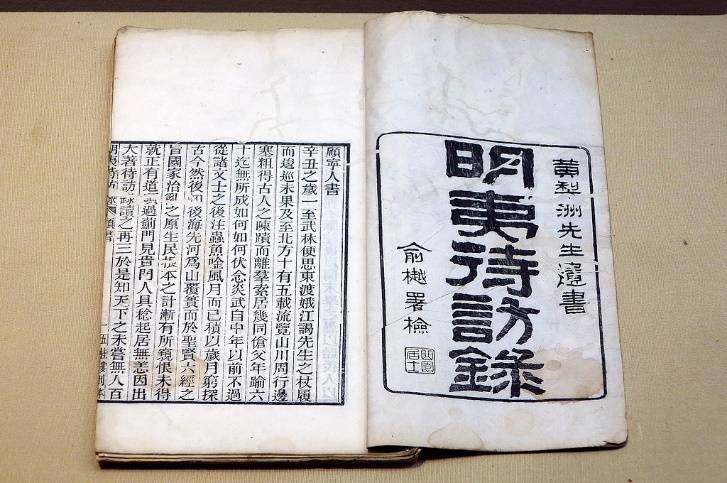 黃棃洲先生遺書
明夷待訪錄
俞樾署檢
曲園居士
顧寧人書
辛丑之歲一至武林便思東渡娥江謁先生之杖履
而逡巡未果及至北方十有五載流覽山川周行邊
塞粗得古人之陳蹟而離羣索居幾同傖父年踰六
十迄無所成如何如何伏念炎武自中年以前不過
從諸文士之後注蟲魚唫風月而已積以歲月窮探
古今然後知後海先河爲山覆簣而於聖賢六經之
旨國家治亂之原生民根本之計漸有所窺恨未得
就正有道頃過薊門見貴門人具稔起居無恙因出
大著待訪錄讀之再三於是知天下之未嘗無人百